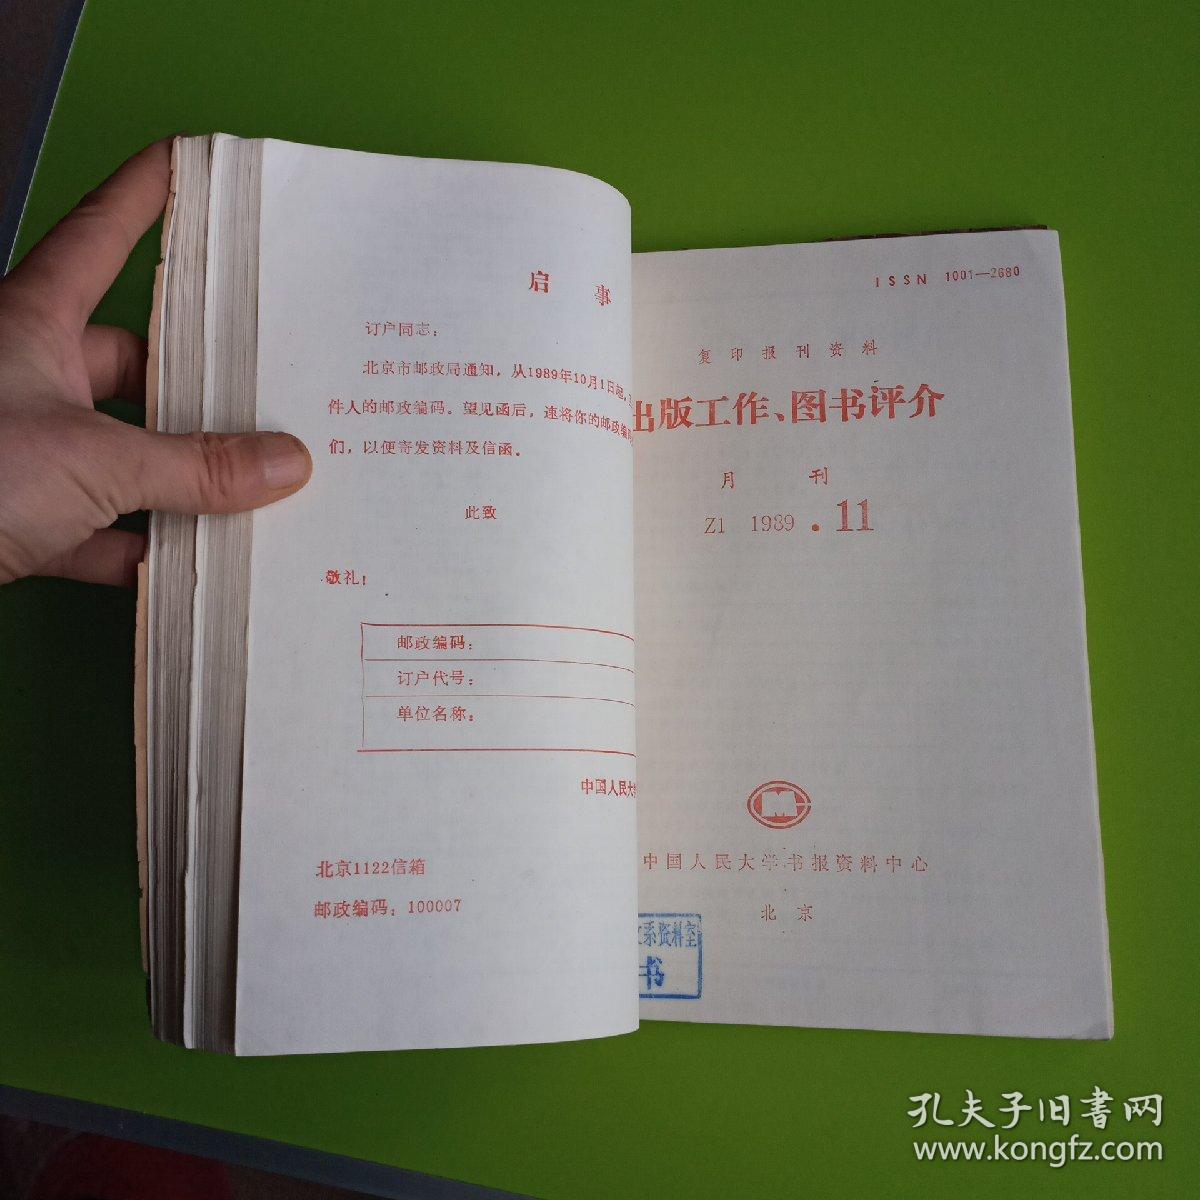 启 事
订户同志:
北京市邮政局通知,从1989年10月1日起,
件人的邮政编码。望见函后,速将你的邮政编
们,以便寄发资料及信函。
此致
敬礼!
邮政编码:
订户代号:
单位名称:
中国人民大
北京1122信箱
邮政编码:100007
ISSN 1001—2680
复印报刊资料
出版工作、图书评介
月 刊
Z1 1989.11
中国人民大学书报资料中心
北京
文系资料室
书
孔夫子旧书网
www.kongfz.com